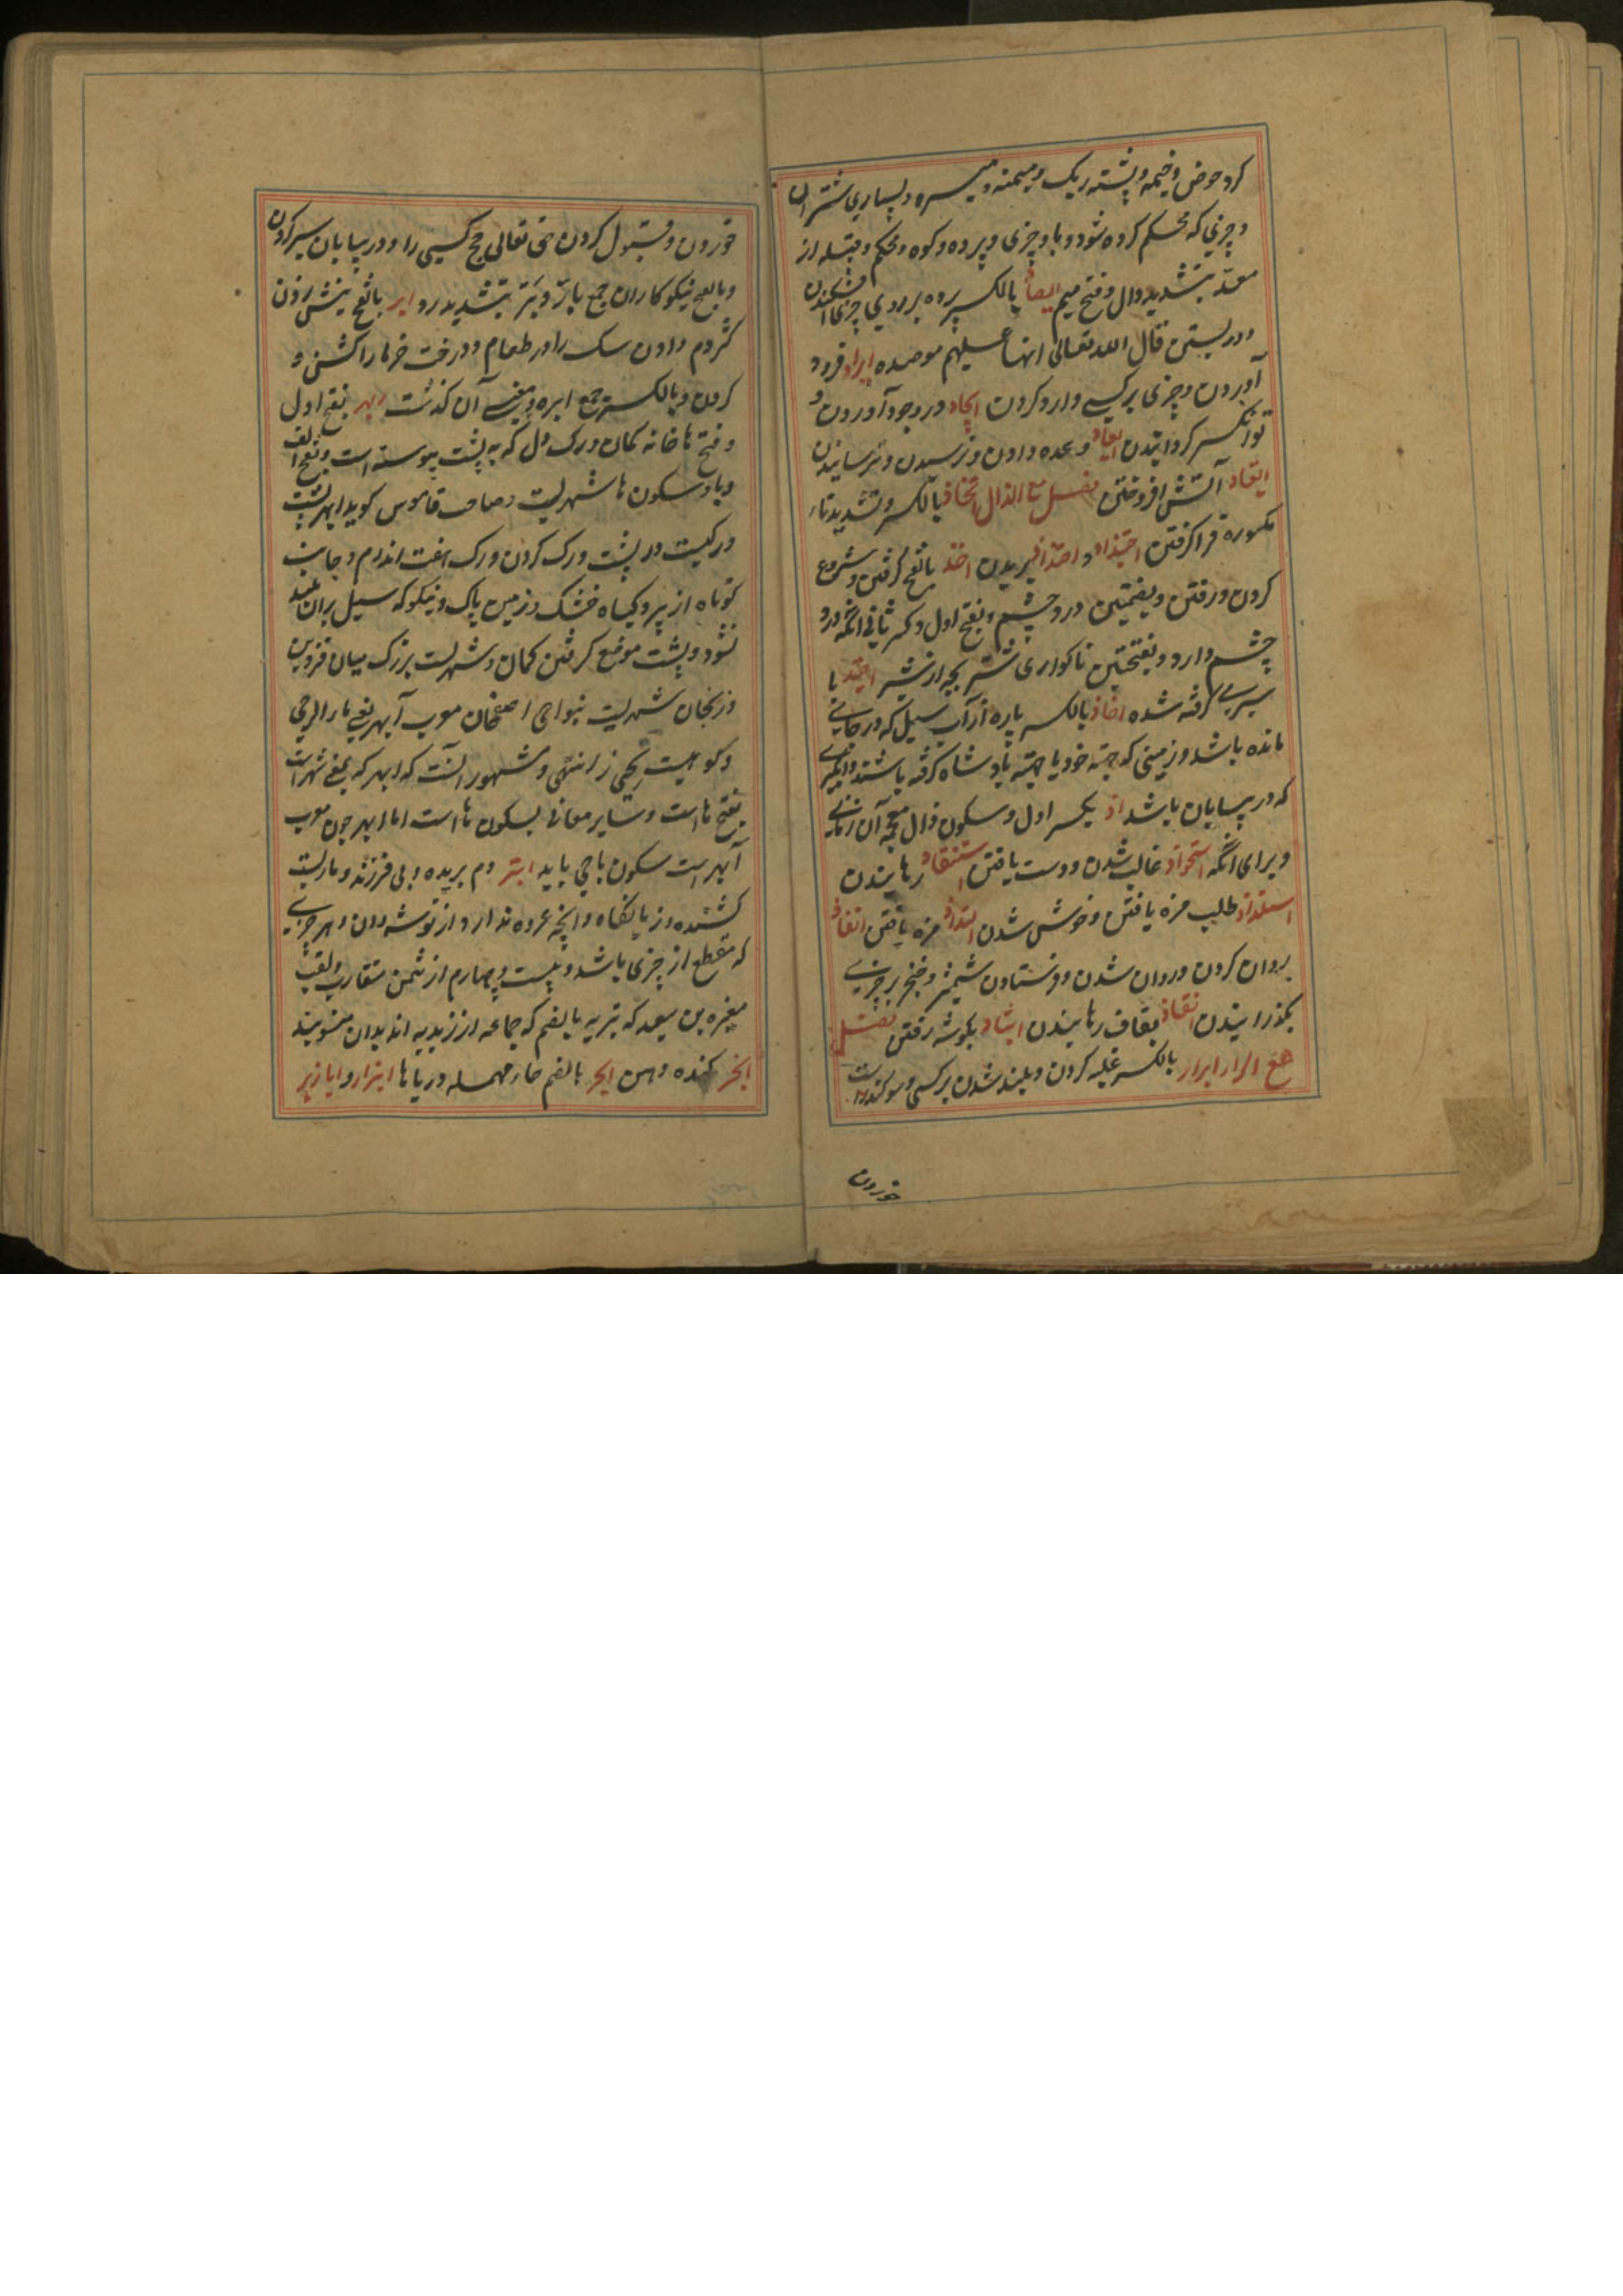 کرد حوض و خیمه و پشته ریک و میمنه و میسره و بسیاری شتران
و چیزی که محکم کرده شود و با و چیزی و پرده و کوه و محکم و قبیله از
معد بتشدید دال و فتح میم ایصاد بالکسر پرده بر روی چیزی افکندن
و در بستن قال الله تعالی انها علیهم موصده ایراد فرود
آوردن و چیزی بر کسی وارد کردن ایجاد در وجود آوردن و
توانگر گردانیدن ایعاد وعده دادن و ترسیدن و ترسانیدن
ایقاد آتش افروختن فصل مع الذال اتخاذ بالکسر و تشدید تاء
مکسوره فرا کرفتن اجتذاذ و اجذاذ بریدن اخذ بالفتح کرفتن و شروع
کردن و رفتن و بضمتین درد چشم و بفتح اول و کسر ثانی انکه درد
چشم دارد و بفتحتین ناکواری شتر بچه از شیر اخیذ با
سیری کرفته شده اخاذ بالکسر پاره از آب سیل که در جائی
مانده باشد و زمینی که جهة خود یا جهة پادشاه کرفته باشند و آبکیری
که در بیابان باشد اذ بکسر اول و سکون ذال معجمه آن زمانی
و برای انکه استحواذ غالب شدن و دست یافتن استنقاذ رهانیدن
استلذاذ طلب مزه یافتن و خوش شدن التذاذ مزه یافتن انفاذ
روان کردن و روان شدن و فرستادن شمشیر و خنجر بر چیزی
بکذرانیدن انقاذ بقاف رهانیدن انتباذ بکوشه رفتن فصل
مع الراء ابرار بالکسر غلبه کردن و بلند شدن بر کسی و سوکند راست
خوردن
خوردن و قبول کردن حق تعالی حج کسی را و در بیابان سیر کردن
و بالفتح نیکوکاران جمع بارّ و بَرّ بتشدید را و ابر بالفتح نیش زدن
کژدم و دادن سک را در طعام و درخت خرما را کشنی و
کردن و بالکسر جمع ابره و معنی آن کذشت ابهر بفتح اول
و فتح ها خانه کمان و رک دل که به پشت پیوسته است و بفتح الف
و با و سکون ها شهریست صاحب قاموس کوید ابهر پشت
و رکیست در پشت و رک کردن و رک هفت اندام و جانب
کوتاه از پر و کیاه خشک و زمین پاک و نیکو که سیل بران بلند
نشود و پشت موضع کرفتن کمان و شهریست بزرک میان قزوین
و زنجان شهریست بنواحی اصفهان معرب آبهر یعنی ماء الرحی
و کوهیست انتهی و مشهور آنست که ابهر که بمعنی شهر است
بفتح هاست و سایر معانی بسکون هاست اما ابهر چون معرب
آبهر است سکون با می باید ابتر دم بریده و بی فرزند و ماریست
کشنده و زیانکاه و انچه عروه ندارد از توشه دان و هر چیزی
که منقطع از چیزی باشد و بیست و چهارم از ثمن متقارب و لقب
مغیره بن سعید که بتریه بالضم که جماعه از زیدیه اند بدان منسوبند
ابخر کنده دهن ابحر بالضم حاء مهمله دریاها ابزار و ابازیر